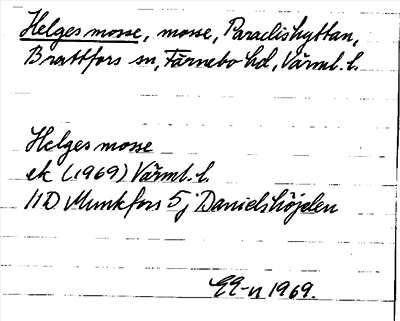 Helges mosse, mosse, Paradishyttan,
Brattfors sn, Färnebo hd, Värml. l.
Helges mosse
ek (1969) Värml. l.
11D Munkfors 5j Danielshöjden
1969.